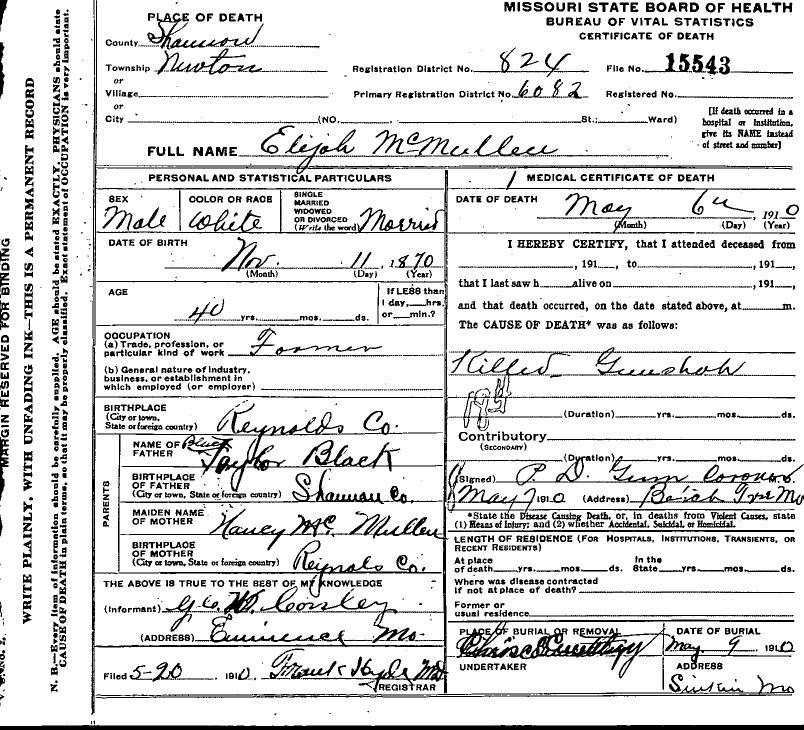 MISSOURI STATE BOARD OF HEALTH
BUREAU OF VITAL STATISTICS
CERTIFICATE OF DEATH
PLACE OF DEATH
County Shannon
Township Newton
or
Village
or
City (NO. St.; Ward)
Registration District No. 824 File No. 15543
Primary Registration District No. 6082 Registered No.
[If death occurred in a
hospital or institution,
give its NAME instead
of street and number]
FULL NAME Elijah McMullen
PERSONAL AND STATISTICAL PARTICULARS
SEX
Male
COLOR OR RACE
White
SINGLE
MARRIED
WIDOWED
OR DIVORCED
(Write the word) Married
DATE OF BIRTH
Nov. 11, 1870
(Month) (Day) (Year)
AGE
40 yrs. mos. ds.
If LESS than
1 day, hrs.
or min.?
OCCUPATION
(a) Trade, profession, or
particular kind of work Farmer
(b) General nature of industry,
business, or establishment in
which employed (or employer)
BIRTHPLACE
(City or town,
State or foreign country) Reynolds Co.
PARENTS
NAME OF
FATHER Taylor Black
BIRTHPLACE
OF FATHER
(City or town, State or foreign country) Shannan Co.
MAIDEN NAME
OF MOTHER Nancy Mc Mullen
BIRTHPLACE
OF MOTHER
(City or town, State or foreign country) Reynols Co.
THE ABOVE IS TRUE TO THE BEST OF MY KNOWLEDGE
(Informant) W.
(ADDRESS) Eminence Mo.
Filed 5-20 1910 Frank Hyde MD
REGISTRAR
MEDICAL CERTIFICATE OF DEATH
DATE OF DEATH May 6th, 1910
(Month) (Day) (Year)
I HEREBY CERTIFY, that I attended deceased from
, 191 , to , 191 ,
that I last saw h alive on , 191 ,
and that death occurred, on the date stated above, at m.
The CAUSE OF DEATH* was as follows:
Killed Gunshot
194
(Duration) yrs. mos. ds.
Contributory
(SECONDARY)
(Duration) yrs. mos. ds.
(Signed) P. D. Gum Coroner
May 7 1910 (Address) Mo
*State the Disease Causing Death, or, in deaths from Violent Causes, state
(1) Means of Injury; and (2) whether Accidental, Suicidal, or Homicidal.
LENGTH OF RESIDENCE (FOR HOSPITALS, INSTITUTIONS, TRANSIENTS, OR
RECENT RESIDENTS)
At place
of death yrs. mos. ds.
In the
State yrs. mos. ds.
Where was disease contracted
if not at place of death?
Former or
usual residence
PLACE OF BURIAL OR REMOVAL
DATE OF BURIAL
May 9 1910
UNDERTAKER
ADDRESS
Sinkin Mo
MARGIN RESERVED FOR BINDING
WRITE PLAINLY, WITH UNFADING INK—THIS IS A PERMANENT RECORD
N. B.—Every item of information should be carefully supplied. AGE should be stated EXACTLY. PHYSICIANS should state
CAUSE OF DEATH in plain terms, so that it may be properly classified. Exact statement of OCCUPATION is very important.